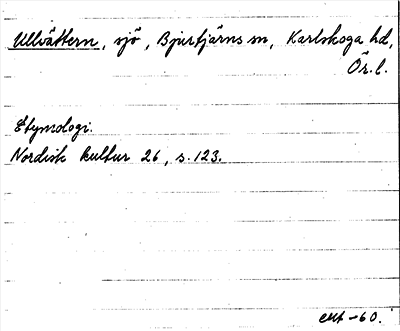 Ullvättern, sjö, Bjurtjärns sn, Karlskoga hd,
Ör.l.
Etymologi.
Nordisk kultur 26, s. 123.
-60.